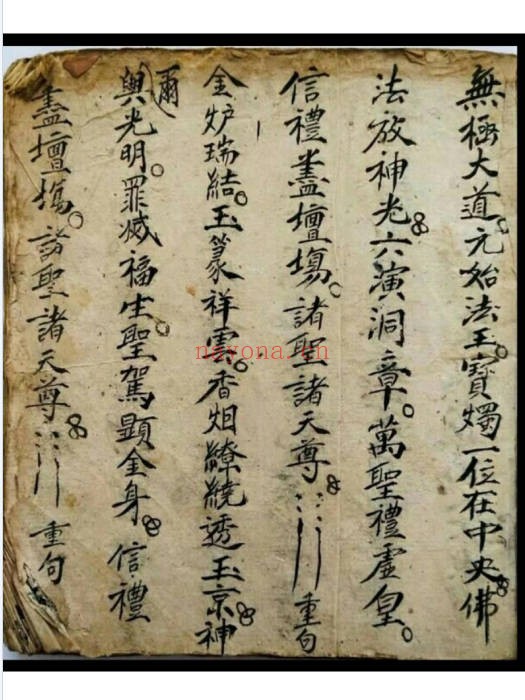 無極大道。元始法王。寳燭一位在中央。佛
法放神光。六演洞章。萬聖禮虚皇。
信禮盡壇塲。諸聖諸天尊 重句
金炉瑞結。玉篆祥雲。香烟繚繞透玉京。神
爾
與光明。罪滅福生聖駕顯金身。信禮
盡壇塲。諸聖諸天尊 重句
nayona.cn